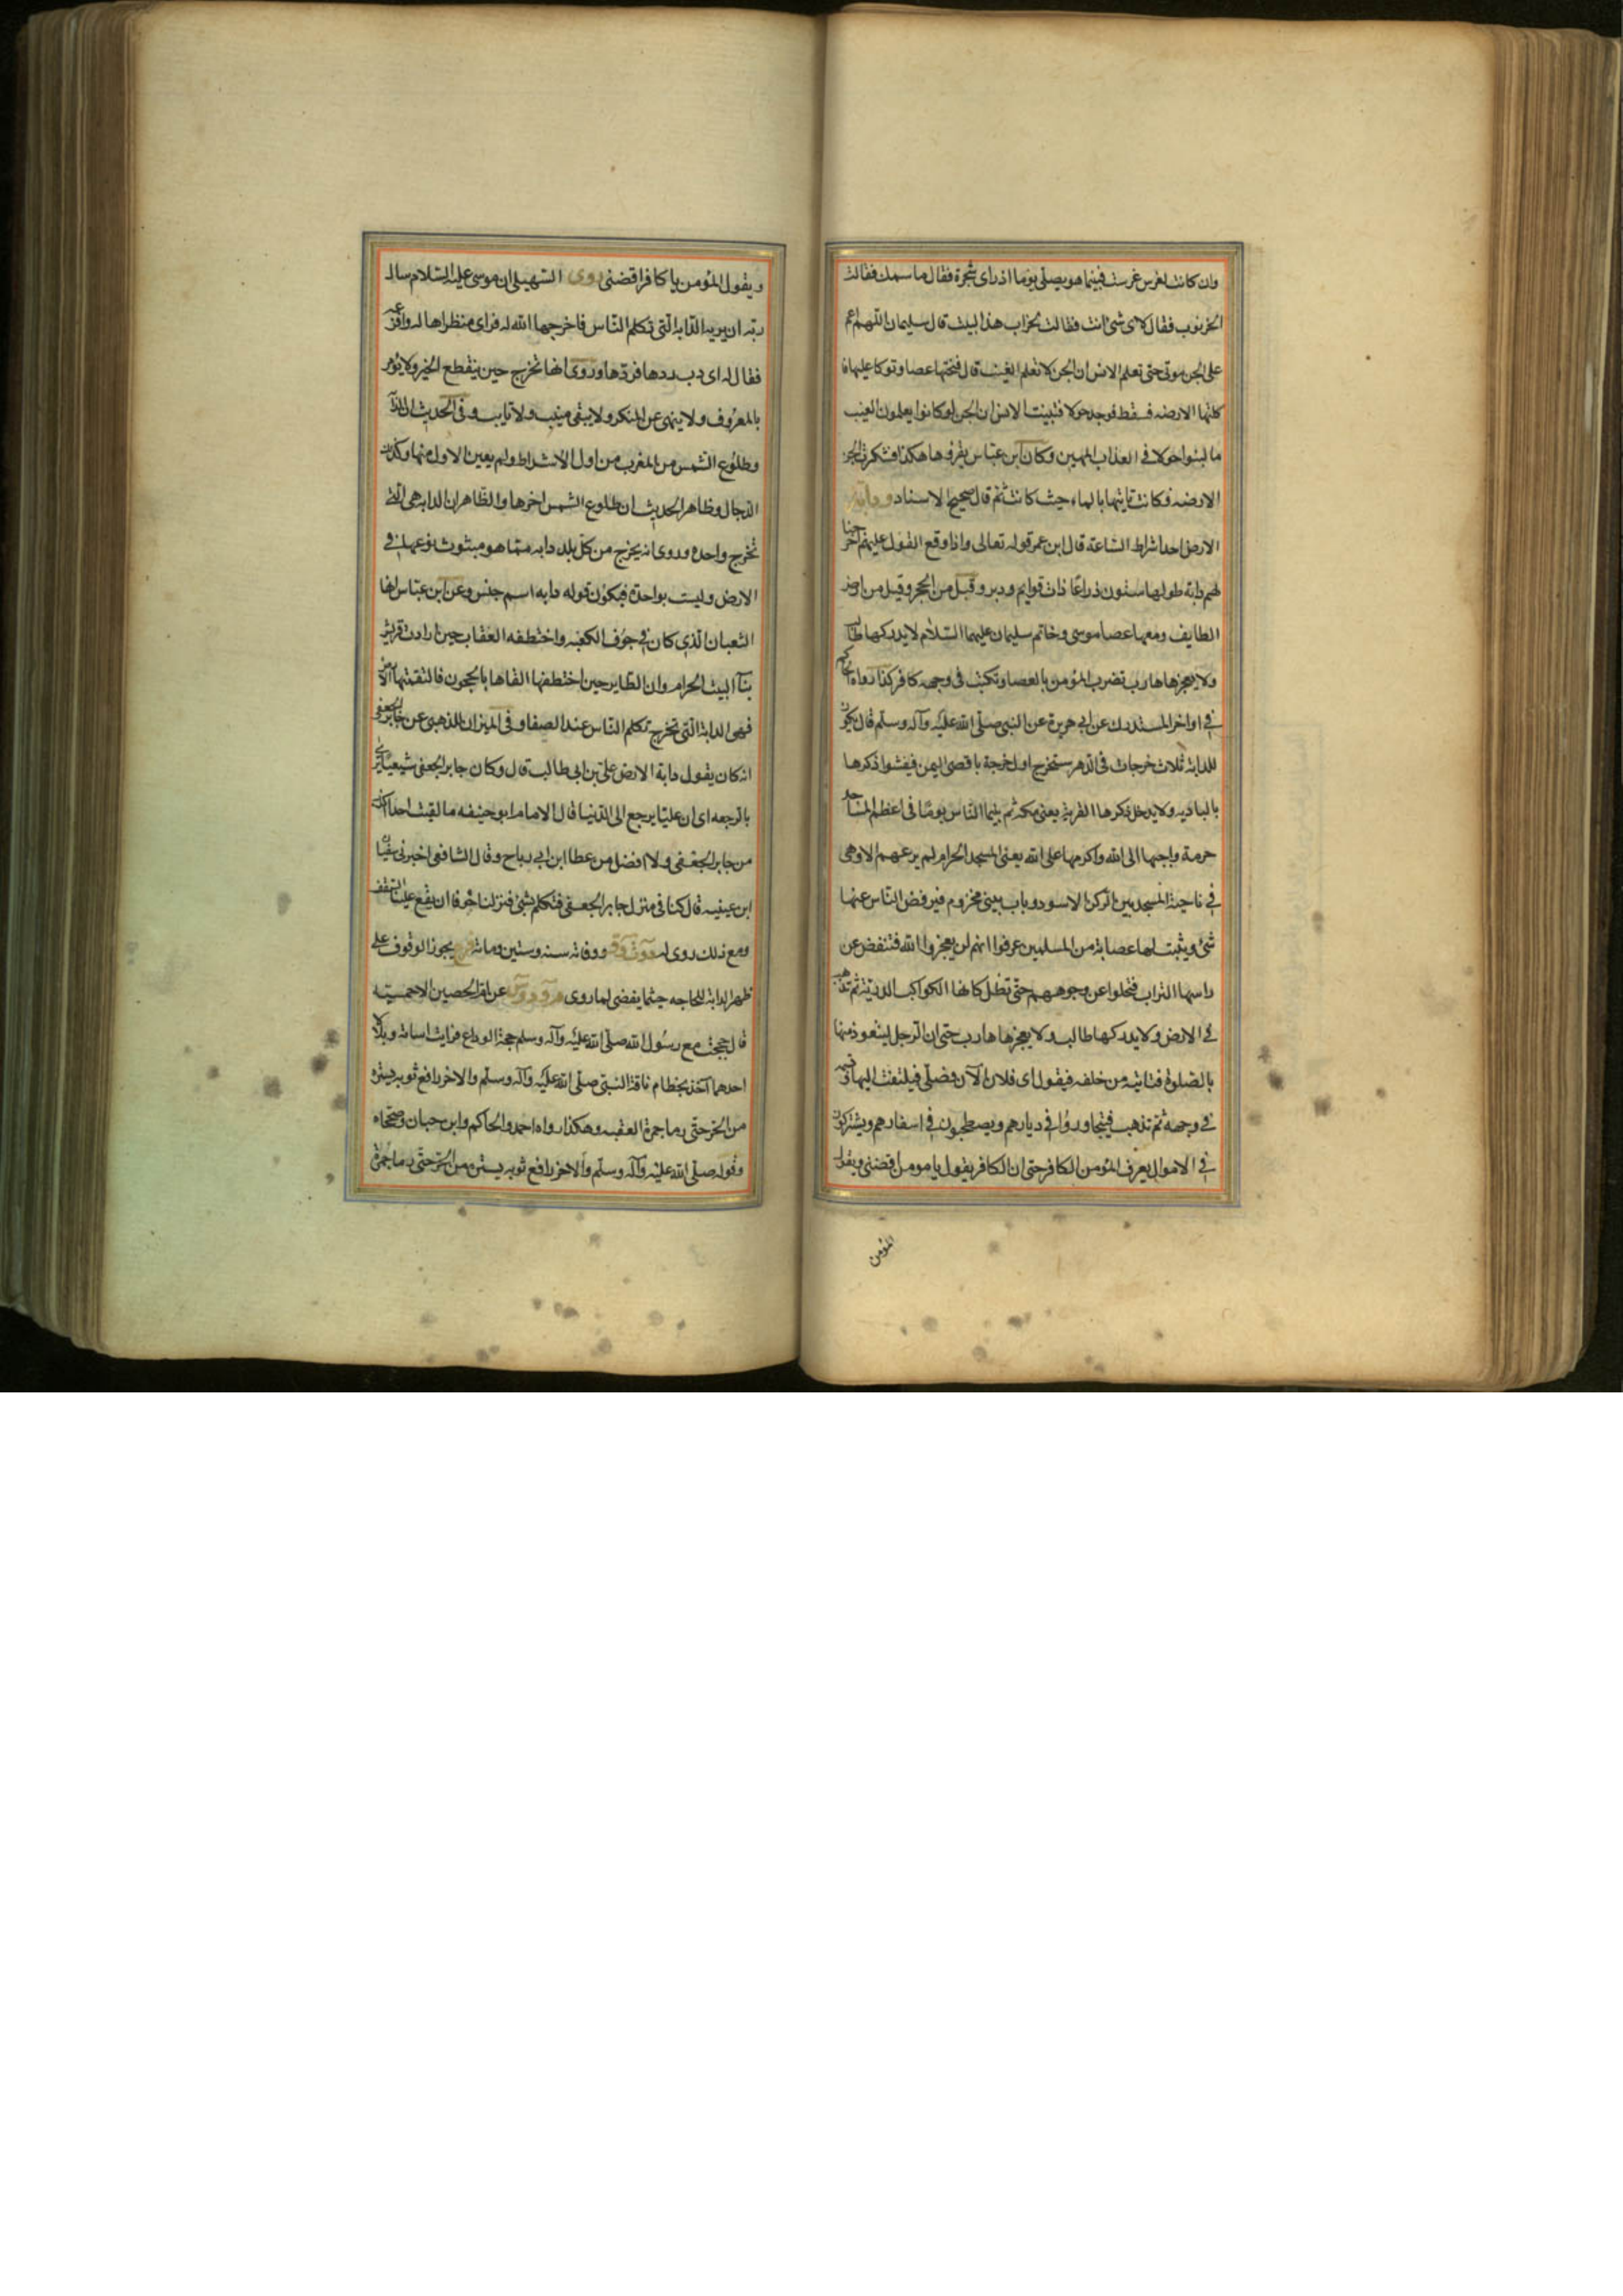 وان كانت لغرس غرست فبينما هو يصلى يوما اذ راى شجرة فقال ما اسمك فقالت
الخرنوب فقال لاى شئ انت فقالت لخراب هذا البيت قال سليمان اللهم اعم
على الجن موتى حتى تعلم الانس ان الجن لا تعلم الغيب قال فنحتها عصا وتوكا عليها فا
كلتها الارضه فسقط فوجد حولا فتبينت الانس ان الجن لو كانوا يعلمون الغيب
ما لبثوا حولا فى العذاب المهين وكان ابن عباس يقروها هكذا فشكرت الجن
الارضه فكانت تاتيها بالماء حيث كانت ثم قال صحيح الاسناد ودابة
الارض احد اشراط الساعة قال ابن عمر قوله تعالى واذا وقع القول عليهم اخرجنا
لهم دابة طولها ستون ذراعا ذات قوايم ودبر وقيل من الحجر وقيل من ارض
الطايف ومعها عصا موسى وخاتم سليمان عليهما السلام لا يدركها طالب
ولا يعجزها هارب تضرب المؤمن بالعصا وتكتب فى وجهه كافر كذا رواه الحاكم
فى اواخر المستدرك عن ابى هريرة عن النبى صلى الله عليه وآله وسلم قال يكون
للدابة ثلاث خرجات فى الدهر ستخرج اول خرجة باقصى اليمن فيفشوا ذكرها
بالباديه ولا يدخل ذكرها القرية يعنى مكه ثم بينما الناس يوما فى اعظم المساجد
حرمة واحبها الى الله واكرمها على الله يعنى المسجد الحرام لم يرعهم الا وهى
فى ناحية المسجد بين الركن الاسود وباب بنى مخزوم فيرفض الناس عنها
شئ ويثبت لها عصابة من المسلمين عرفوا انهم لن يعجزوا الله فتنفض عن
راسها التراب فتجلوا عن وجوههم حتى تظل كانها الكواكب الدرية ثم تذهب
فى الارض ولا يدركها طالب ولا يعجزها هارب حتى ان الرجل ليتعوذ منها
بالصلوة فتاتيه من خلفه فيقول اى فلان الآن فصلى فيلتفت اليها فتسمه
فى وجهه ثم تذهب فيتجاوروا فى ديارهم ويصطحبون فى اسفارهم ويشتركون
فى الاموال يعرف المؤمن الكافر حتى ان الكافر يقول يا مومن اقضنى ويقول
المؤمن
ويقول المؤمن يا كافر اقضنى روى السهيلى ان موسى عليه السلام سال
ربه ان يريه الدابه التى تكلم الناس فاخرجها الله له فراى منظرا هاله وافزعه
فقال له اى رب ردها فردها وروى انها تخرج حين ينقطع الخير ولا يؤمر
بالمعروف ولا ينهى عن المنكر ولا يبقى منيب ولا تايب وفى الحديث ان الدابة
وطلوع الشمس من المغرب من اول الاشراط ولم يعين الاول منها وكذلك
الدجال وظاهر الحديث ان طلوع الشمس اخرها والظاهر ان الدابه هى التى
تخرج واحدة وروى انه يخرج من كل بلد دابه مما هو مبثوث نوعها فى
الارض وليست بواحدة فيكون قوله دابه اسم جنس وعن ابن عباس انها
الثعبان الذى كان فى جوف الكعبه واختطفه العقاب حين ارادت قريش
بنآ البيت الحرام وان الطاير حين اختطفها القاها بالحجون فالتقتها الارض
فهى الدابة التى تخرج تكلم الناس عند الصفا وفى الميزان للذهبى عن جابر الجعفى
انه كان يقول دابة الارض على بن ابى طالب قال وكان جابر الجعفى شيعيا يرى
بالرجعه اى ان عليا يرجع الى الدنيا قال الامام ابو حنيفه ما لقيت احدا اكذب
من جابر الجعفى ولا افضل من عطا ابن ابى رباح وقال الشافعى اخبرنى سفيان
ابن عيينه قال كنا فى منزل جابر الجعفى فتكلم بشئ فنزلنا خوفا ان يقع علينا السقف
ومع ذلك روى له ووفاته سنه وستين ومائه فرع يجوز الوقوف على
ظهر الدابة للحاجه حيثما يقضى لما روى عن ام الحصين الاحمسيه
قال حججت مع رسول الله صلى الله عليه وآله وسلم حجة الوداع فرايت اسامة وبلالا
احدهما آخذ بخطام ناقة النبى صلى الله عليه وآله وسلم والاخر رافع ثوبه يستره
من الحر حتى رما جمرة العقبه وهكذا رواه احمد والحاكم وابن حبان وصححاه
وقوله صلى الله عليه وآله وسلم والاخر رافع ثوبه يستره من الحر حتى رما جمرة